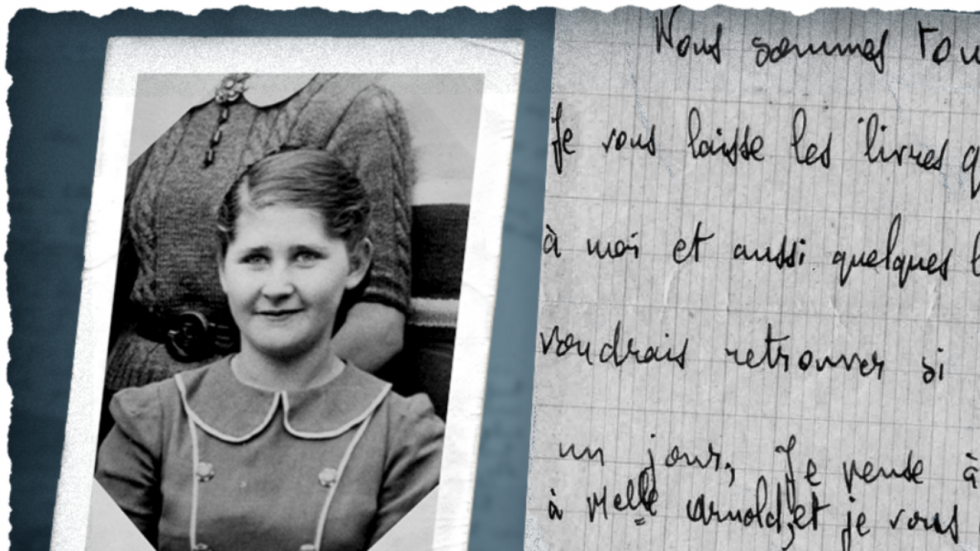 Nous sommes tou
Je vous laisse les livres q
à moi et aussi quelques l
voudrais retrouver si
un jour, Je pense à
à Melle Arnold, et je vous